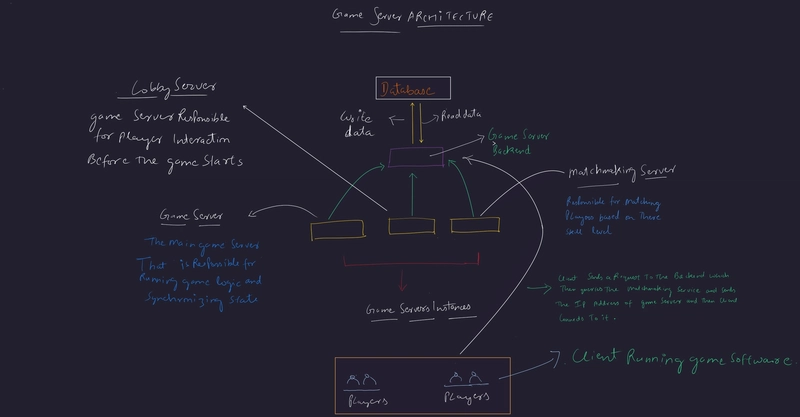 Game Server ARCHITECTURE
Lobby Server
game Server Responsible
for Player Interaction
Before The game Starts
Database
Write
data
Read data
Game Server
Backend
Matchmaking Server
Responsible for Matching
Players based on There
skill level
Game Server
The Main game Server
That is Responsible for
Running game logic and
Synchronizing State
Game Servers Instances
Client Sends a Request To The Backend which
Then queries The Matchmaking Service and
The IP Address of game Server and then Client
To it.
Client Running game Software.
Players
Players